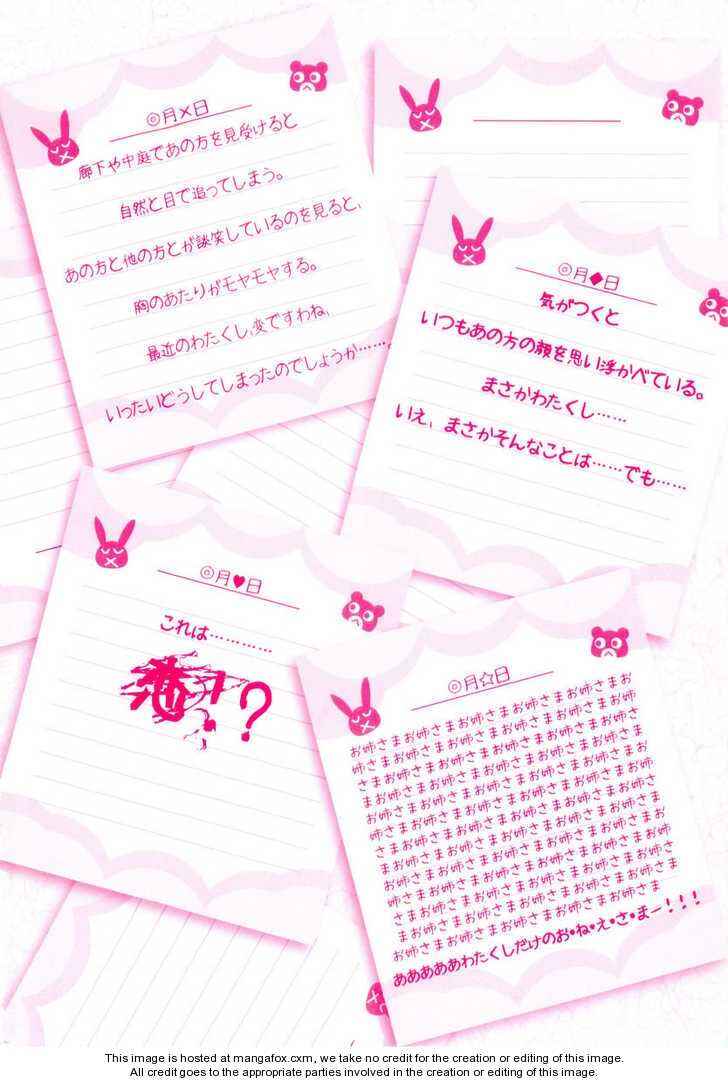 ◎月×日
廊下や中庭であの方を見受けると
自然と目で追ってしまう。
あの方と他の方とが談笑しているのを見ると、
胸のあたりがモヤモヤする。
最近のわたくし、変ですわね、
いったいどうしてしまったのでしょうか……。
◎月◆日
気がつくと
いつもあの方の顔を思い浮かべている。
まさかわたくし……
いえ、まさかそんなことは……でも……
◎月♥日
これは…………
？
◎月☆日
お姉さまお姉さまお姉さまお姉さまお
姉さまお姉さまお姉さまお姉さまお姉
さまお姉さまお姉さまお姉さまお姉さ
まお姉さまお姉さまお姉さまお姉さま
お姉さまお姉さまお姉さまお姉さまお
姉さまお姉さまお姉さまお姉さまお姉
さまお姉さまお姉さまお姉さまお姉さ
まお姉さまお姉さまお姉さまお姉さま
お姉さまお姉さまお姉さまお姉さまお
姉さまお姉さまお姉さまお姉さまお姉
さまお姉さまお姉さまお姉さまお姉さ
まお姉さまお姉さまお姉さまお姉さま
お姉さまお姉さまお姉さまお姉さま
あああああわたくしだけのお・ね・え・さ・まー！！！
This image is hosted at mangafox.cxm, we take no credit for the creation or editing of this image.
All credit goes to the appropriate parties involved in the creation or editing of this image.